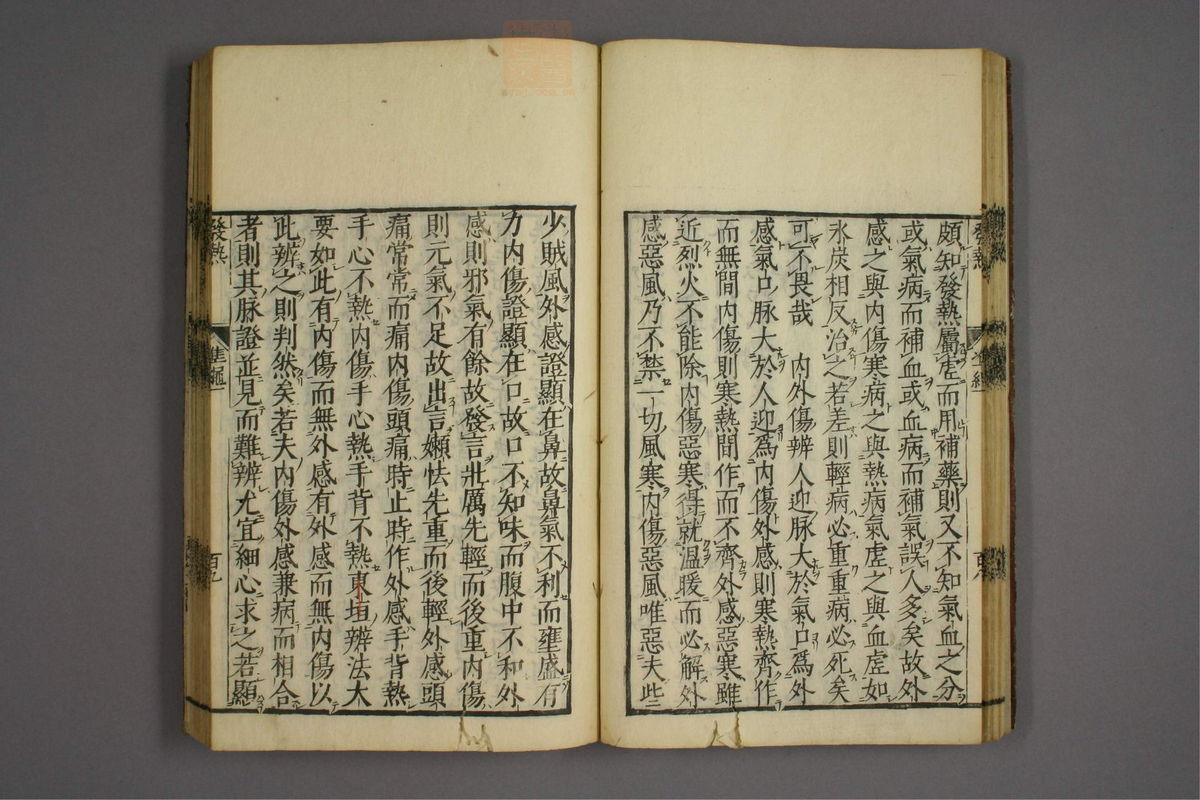 頗知發熱屬虛而用補藥則又不知氣血之分
或氣病而補血或血病而補氣誤人多矣故外
感之與內傷寒病之與熱病氣虛之與血虛如
氷炭相反治之若差則輕病必重重病必死矣
可不畏哉 內外傷辨人迎脉大於氣口爲外
感氣口脉大於人迎爲內傷外感則寒熱齊作
而無間內傷則寒熱間作而不齊外感惡寒雖
近烈火不能除內傷惡寒得就溫暖而必解外
感惡風乃不禁一切風寒內傷惡風唯惡夫些
少賊風外感證顯在鼻故鼻氣不利而壅盛有
力內傷證顯在口故口不知味而腹中不和外
感則邪氣有餘故發言壯厲先輕而後重內傷
則元氣不足故出言嬾怯先重而後輕外感頭
痛常常而痛內傷頭痛時止時作外感手背熱
手心不熱內傷手心熱手背不熱東垣辨法大
要如此有內傷而無外感有外感而無內傷以
此辨之則判然矣若夫內傷外感兼病而相合
者則其脉證並見而難辨尤宜細心求之若顯
發熱 準繩一 百九